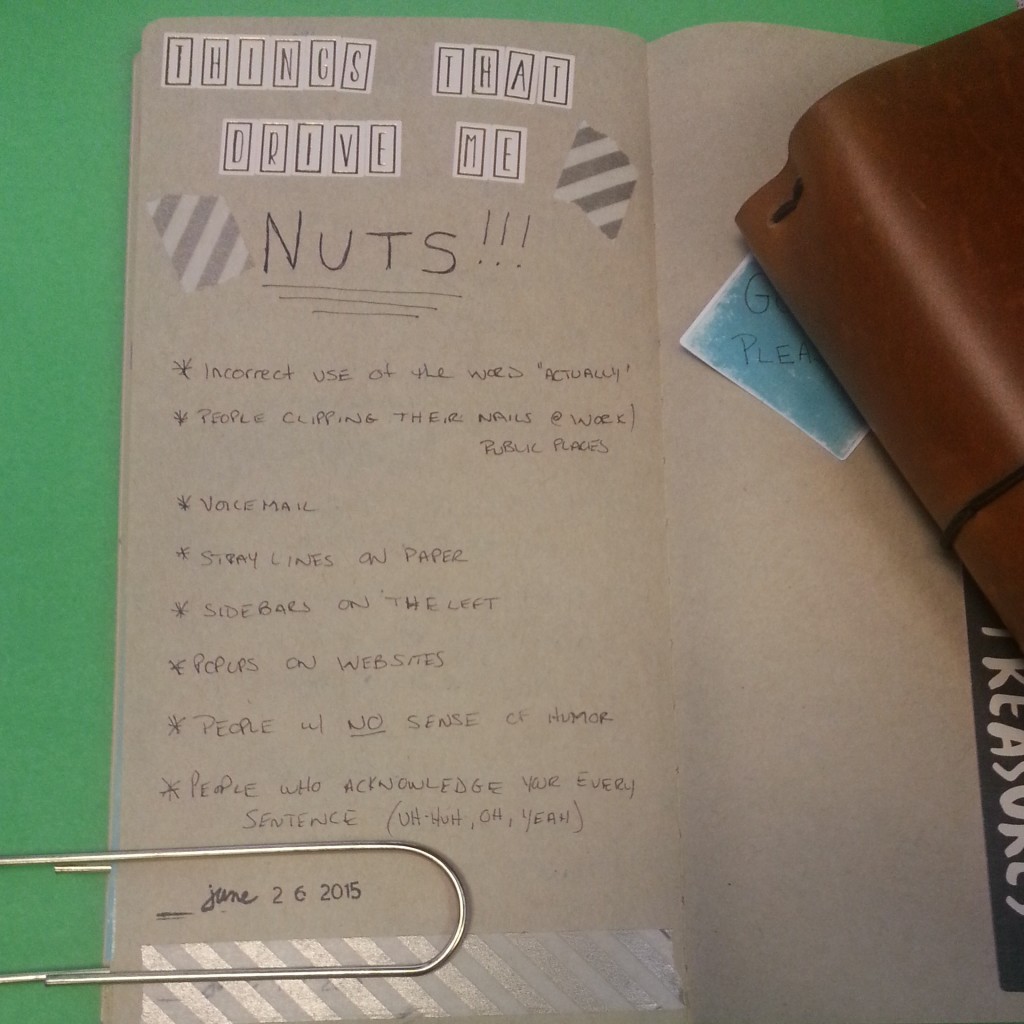 THINGS THAT
DRIVE ME
NUTS!!!
* Incorrect USE of the WORD "ACTUALLY"
* PEOPLE CLIPPING THEIR NAILS @ WORK/
PUBLIC PLACES
* VOICEMAIL
* STRAY LINES ON PAPER
* SIDEBARS ON THE LEFT
* POPUPS ON WEBSITES
* PEOPLE w/ NO SENSE OF HUMOR
* PEOPLE WHO ACKNOWLEDGE YOUR EVERY
SENTENCE (UH-HUH, OH, YEAH)
june 26 2015
G
PLEA
TREASURES